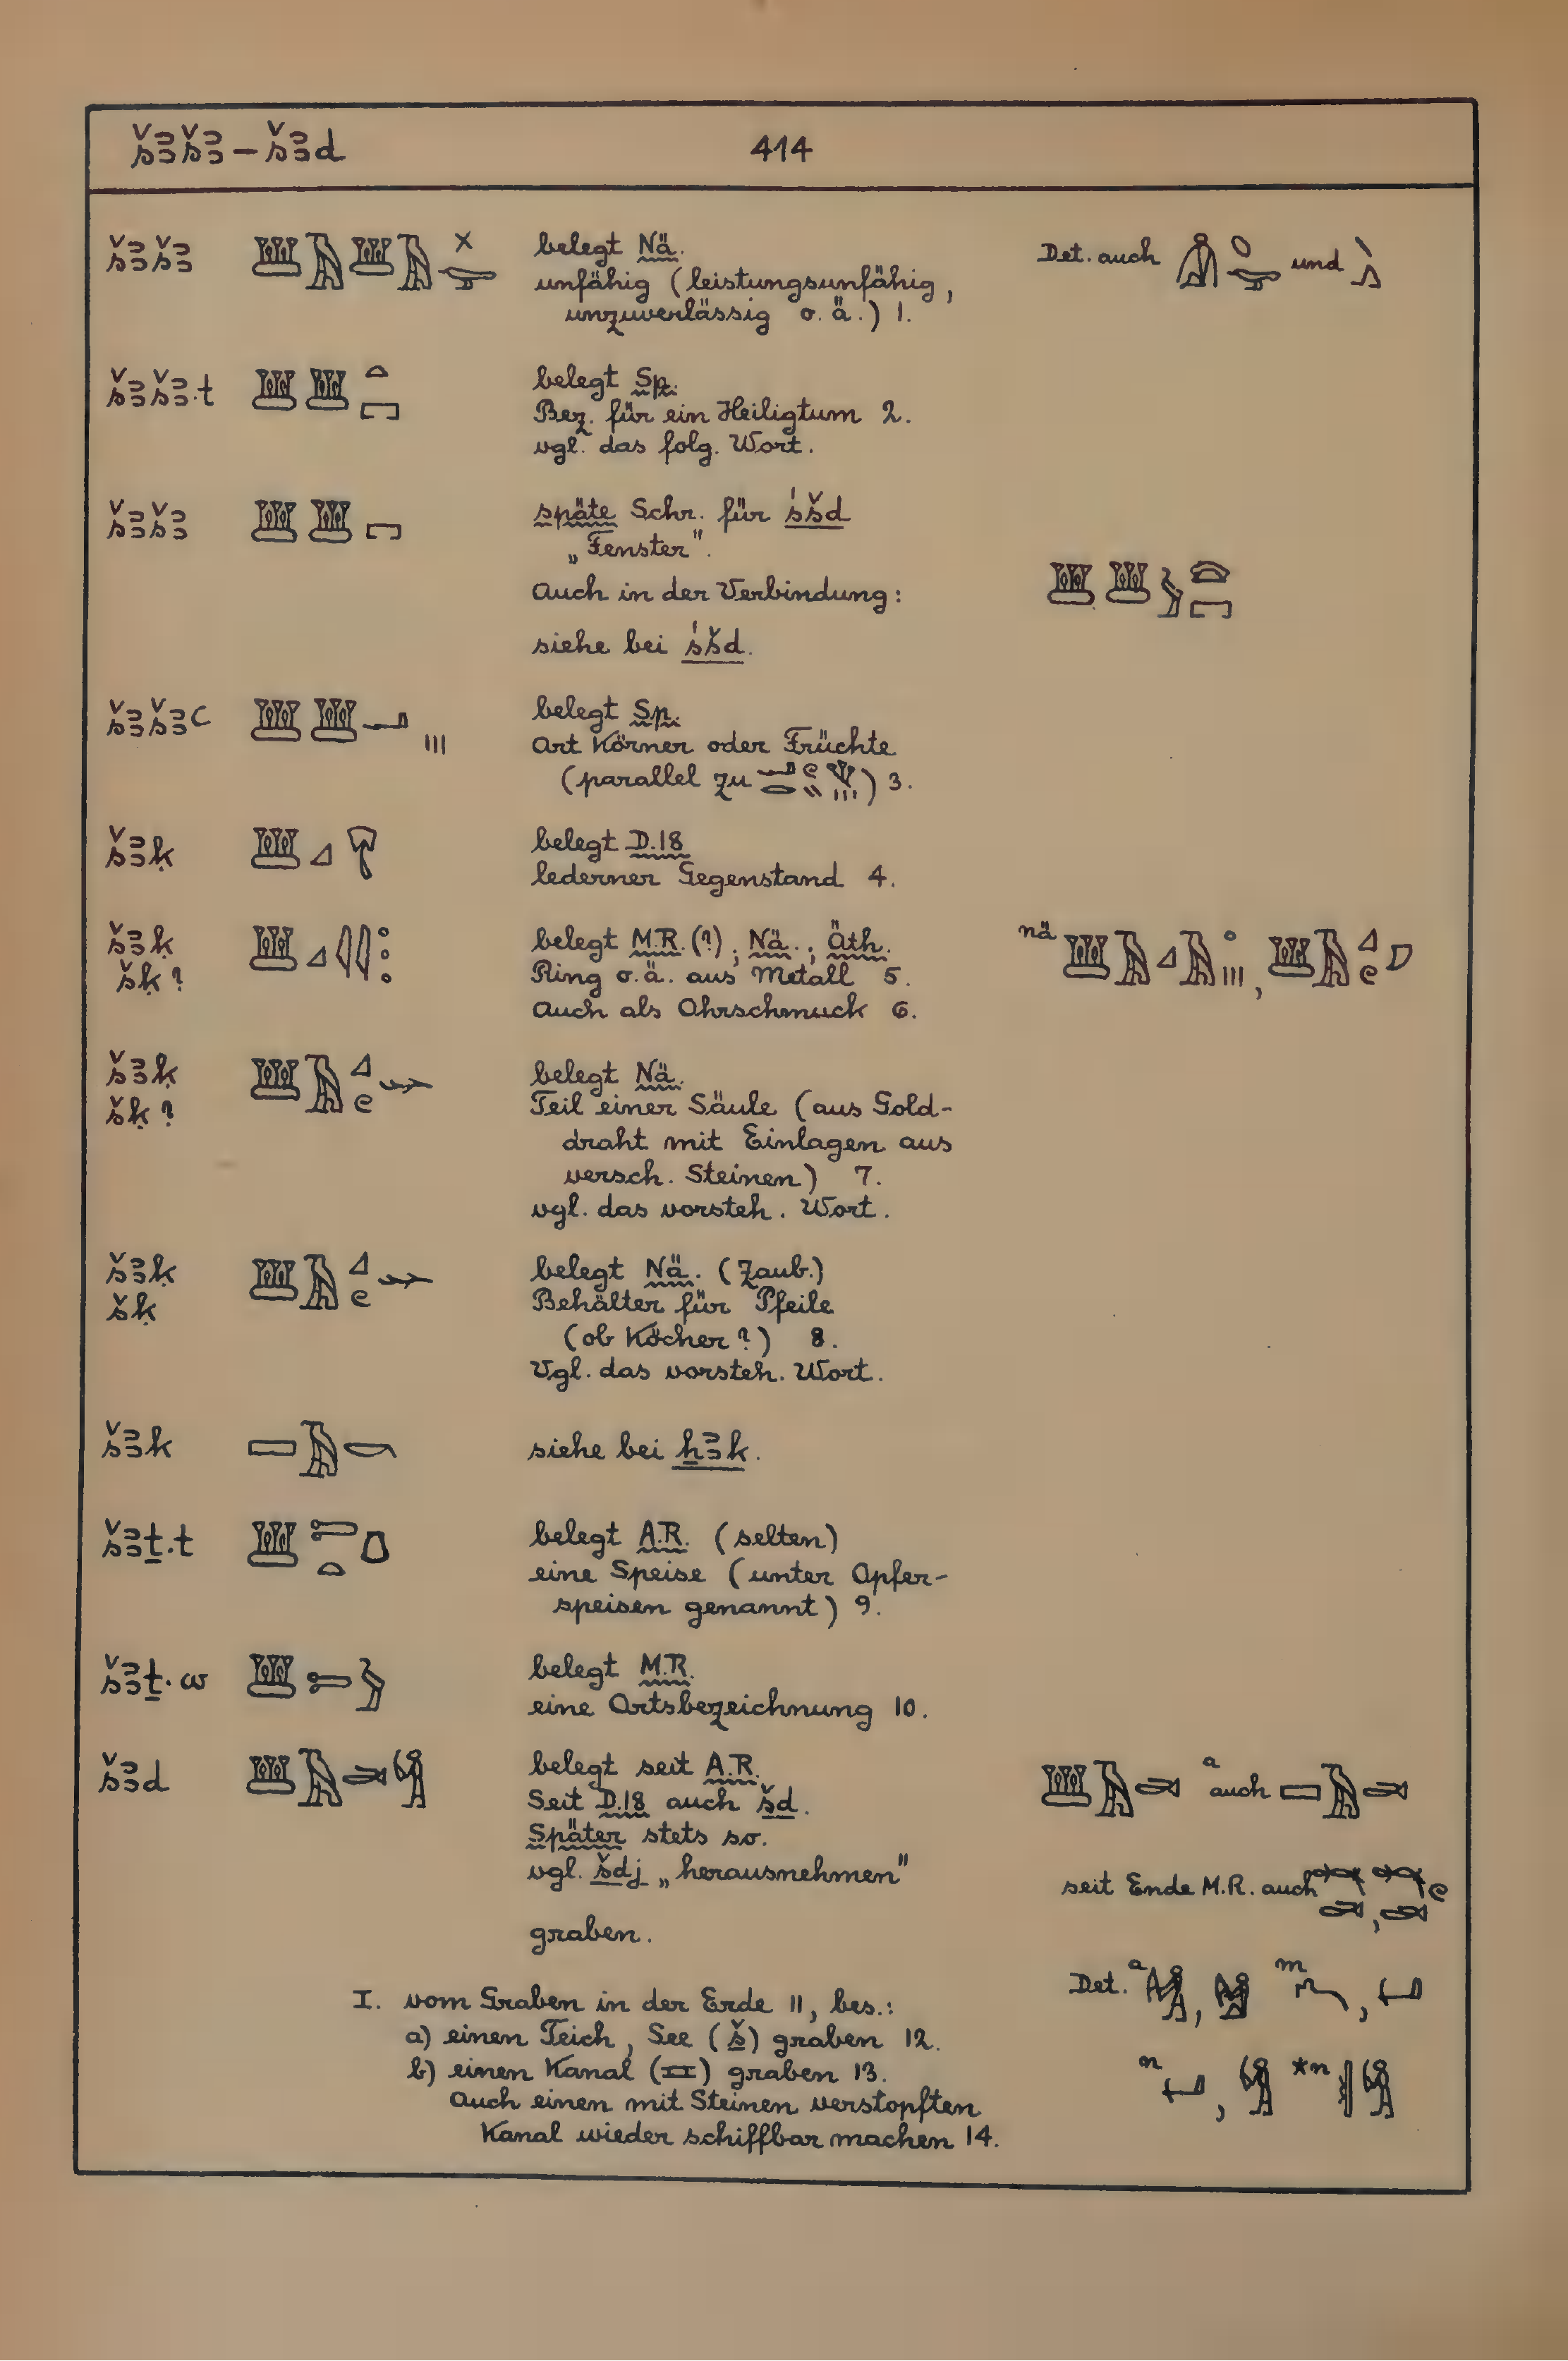 šꜣšꜣ – šꜣd 414
šꜣšꜣ belegt Nä.
unfähig (leistungsunfähig,
unzuverlässig o. ä.) 1.
Det. auch und
šꜣšꜣ.t belegt Sp.
Bez. für ein Heiligtum 2.
vgl. das folg. Wort.
šꜣšꜣ späte Schr. für śšd
„Fenster".
Auch in der Verbindung:
siehe bei śšd.
šꜣšꜣꜥ belegt Sp.
Art Körner oder Früchte
(parallel zu ) 3.
šꜣḳ belegt D.18
lederner Gegenstand 4.
šꜣḳ belegt M.R. (?), Nä., Äth.
šḳ? Ring o.ä. aus Metall 5.
Auch als Ohrschmuck 6.
nä ,
šꜣḳ belegt Nä.
šḳ? Teil einer Säule (aus Gold-
draht mit Einlagen aus
versch. Steinen) 7.
vgl. das vorsteh. Wort.
šꜣḳ belegt Nä. (Zaub.)
šḳ Behälter für Pfeile
(ob Köcher?) 8.
Vgl. das vorsteh. Wort.
šꜣk siehe bei ẖꜣk.
šꜣṯ.t belegt A.R. (selten)
eine Speise (unter Opfer-
speisen genannt) 9.
šꜣṯ.w belegt M.R.
eine Ortsbezeichnung 10.
šꜣd belegt seit A.R.
Seit D.18 auch šd.
Später stets so.
vgl. šdj „herausnehmen"
a auch
seit Ende M.R. auch ,
graben.
Det. a , m ,
I. vom Graben in der Erde 11, bes.:
a) einen Teich, See (š) graben 12.
b) einen Kanal ( ) graben 13.
n , *n
Auch einen mit Steinen verstopften
Kanal wieder schiffbar machen 14.